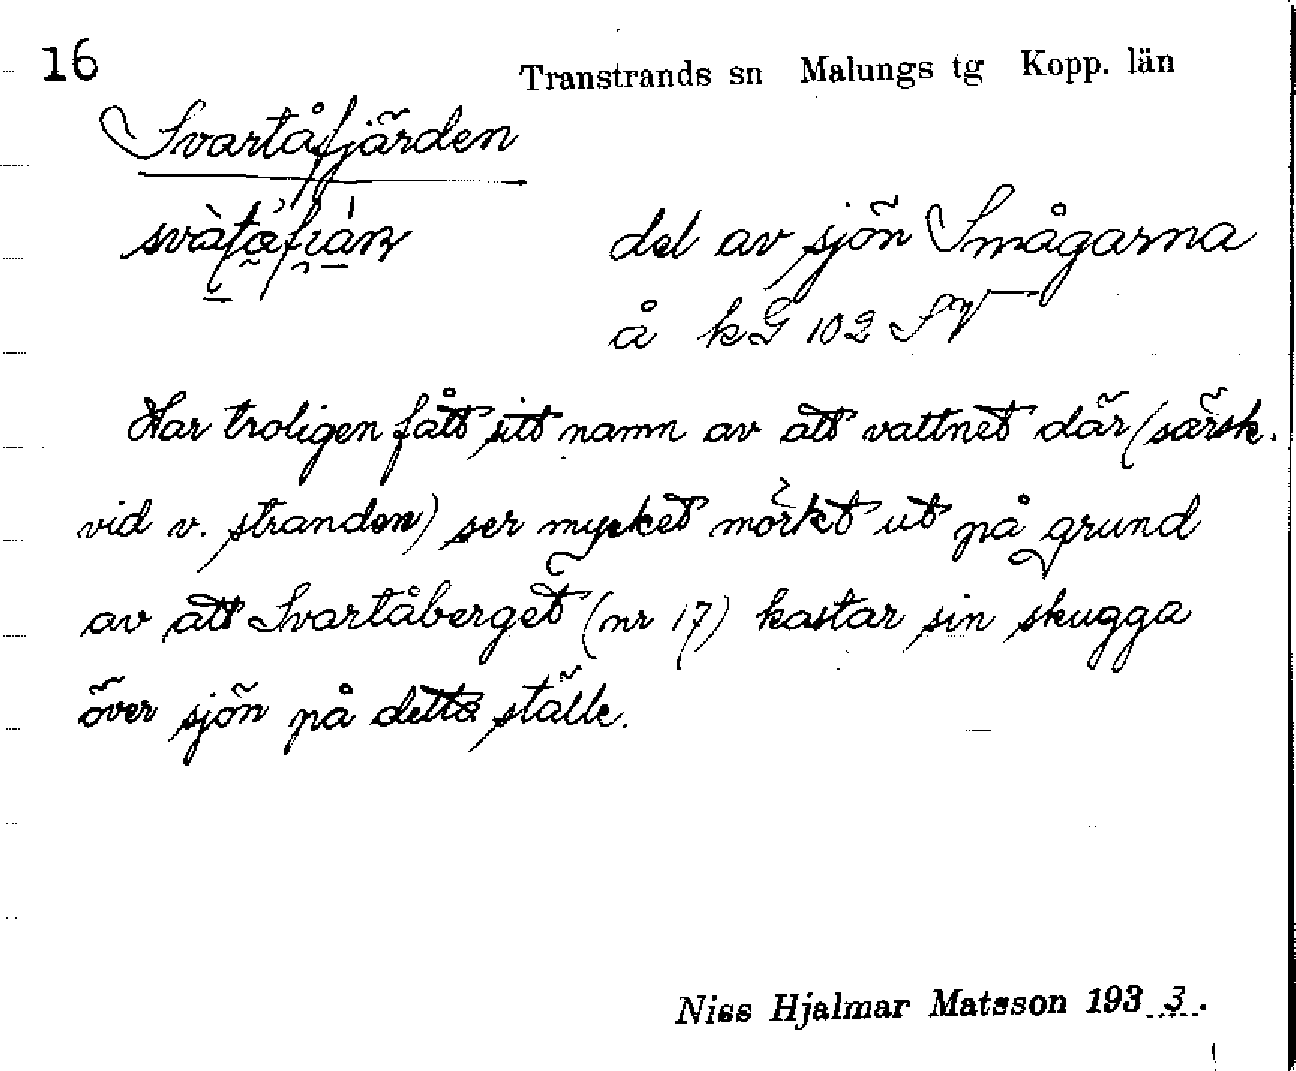 16
Transtrands sn Malungs tg Kopp. län
Svartåfjärden
del av sjön Smågarna
å kG 102 SV
Har troligen fått sitt namn av att vattnet där (särsk.
vid v. stranden) ser mycket mörkt ut på grund
av att Svartåberget (nr 17) kastar sin skugga
över sjön på detta ställe.
Niss Hjalmar Matsson 193 3.